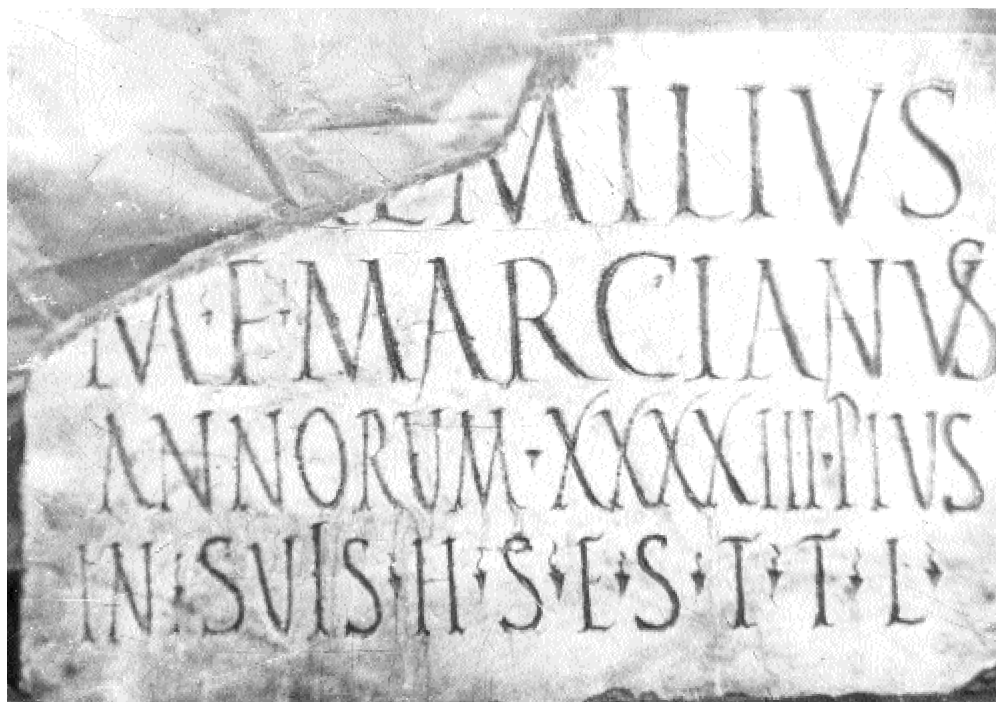 AEMILIVS
M·F·MARCIANVS
ANNORUM·XXXXIII·PIUS
IN·SVIS·H·S·E·S·T·T·L·